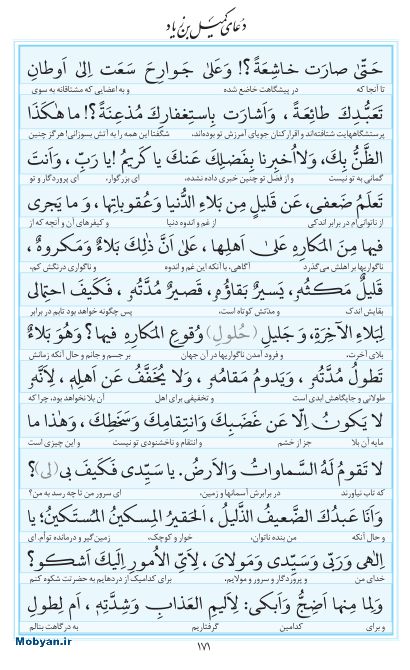 دُعای کمیل بن زیاد
حَتّىٰ صارَت خاشِعَةً؟! وَعَلىٰ جَوارِحَ سَعَت اِلىٰ اَوطانِ
تا آنجا که در پیشگاهت خاضع شده و به اعضایی که مشتاقانه به سوی
تَعَبُّدِكَ طائِعَةً ، وَاَشارَت بِاِستِغفارِكَ مُذعِنَةً؟! ما هٰكَذَا
پرستشگاههایت شتافته‌اند و اقرار کنان جویای آمرزش تو بوده‌اند، شگفتا این همه را به آتش بسوزانی! هرگز چنین
الظَّنُّ بِكَ، وَلااُخبِرنا بِفَضلِكَ عَنكَ يا كَريمُ !يا رَبِّ ، وَاَنتَ
گمانی به تو نیست و از فضل تو چنین خبری داده نشده، ای بزرگوار، ای پروردگار و تو
تَعلَمُ ضَعفى، عَن قَليلٍ مِن بَلاءِ الدُّنيا وَعُقوباتِها ، وَ ما يَجرى
از ناتوانی‌ام در برابر اندکی از غم و اندوه دنیا و کیفرهای آن و آنچه که از
فيها مِنَ المَكارِهِ عَلىٰ اَهلِها ، عَلىٰ اَنَّ ذٰلِكَ بَلاءٌ وَمَكروهٌ ،
ناگواریها بر اهلش می‌گذرد آگاهی، با آنکه این غم و اندوه و ناگواری درنگش کم،
قَليلٌ مَكثُهُ، يَسيرٌ بَقاؤُهُ، قَصيرٌ مُدَّتُهُ ، فَكَيفَ احتِمالى
بقایش اندک و مدتش کوتاه است، پس چگونه خواهد بود تابم در برابر
لِبَلاءِ الآخِرَةِ، وَ جَليلِ (حُلولِ) وُقوعِ المَكارِهِ فيها؟ وَهُوَ بَلاءٌ
بلای آخرت، و فرود آمدن ناگواریها در آن جهان بر جسم و جانم و حال آنکه زمانش
تَطولُ مُدَّتُهُ ، وَيَدومُ مَقامُهُ ، وَلا يُخَفَّفُ عَن اَهلِهِ، لِاَنَّهُ
طولانی و جایگاهش ابدی است و تخفیفی برای اهل آن بلا نخواهد بود، چرا که
لا يَكونُ اِلّا عَن غَضَبِكَ وَانتِقامِكَ وَسَخَطِكَ ، وَهٰذا ما
مایه آن بلا جز از خشم و انتقام و ناخشنودی تو نیست و این چیزی است
لا تَقومُ لَهُ السَّماواتُ وَالاَرضُ. يا سَيِّدى فَكَيفَ بى (لى)؟
که تاب نیاورند در برابرش آسمانها و زمین، ای سرور من تا چه رسد به من؟
وَاَنَا عَبدُكَ الضَّعيفُ الذَّليلُ ، اَلحَقيرُ المِسكينُ المُستَكينُ؛ يا
و حال آنکه من بنده ناتوان، خوار و کوچک، زمین‌گیر و درمانده توأم. ای
اِلٰهى وَرَبّى وَسَيِّدى وَمَولاىَ ، لِاَىِّ الاُمورِ اِلَيكَ اَشكو؟
خدای من و پروردگار و سرور و مولایم، برای کدامیک از دردهایم به حضرتت شکوه کنم
وَلِما مِنها اَضِجُّ وَاَبكى: لِاَليمِ العَذابِ وَشِدَّتِهِ ، اَم لِطولِ
و برای کدامین گرفتاریم به درگاهت بنالم
۱۷۱
Mobyan.ir